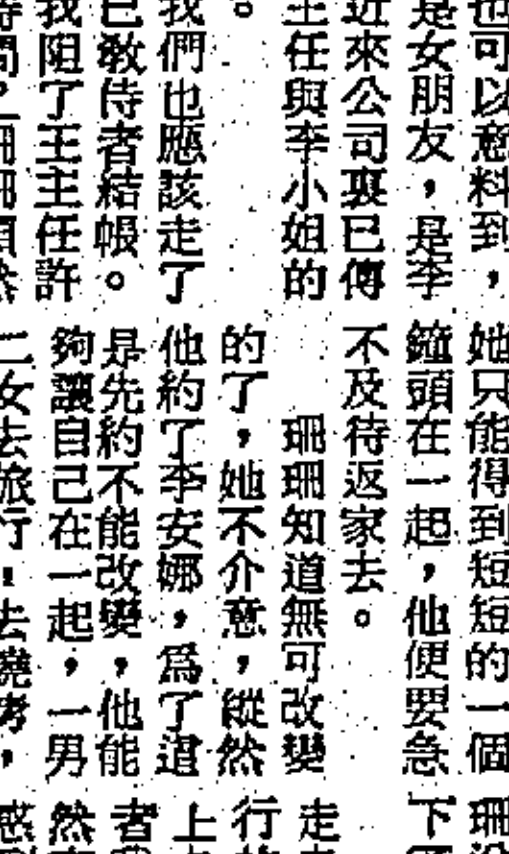 也可以意料到，
是女朋友，是李
近來公司裏已傳
主任與李小姐的
。
我們也應該走了
已敎侍者結帳。
我阻了王主任許
她只能得到短短的一個
鐘頭在一起，他便要急
不及待返家去。
珊珊知道無可改變
的了，她不介意，縱然
他約了李安娜，爲了這
是先約不能改變，他能
夠讓自己在一起，一男
二女去旅行，去燒烤，
珊
下
走
行
上
者
然
惑